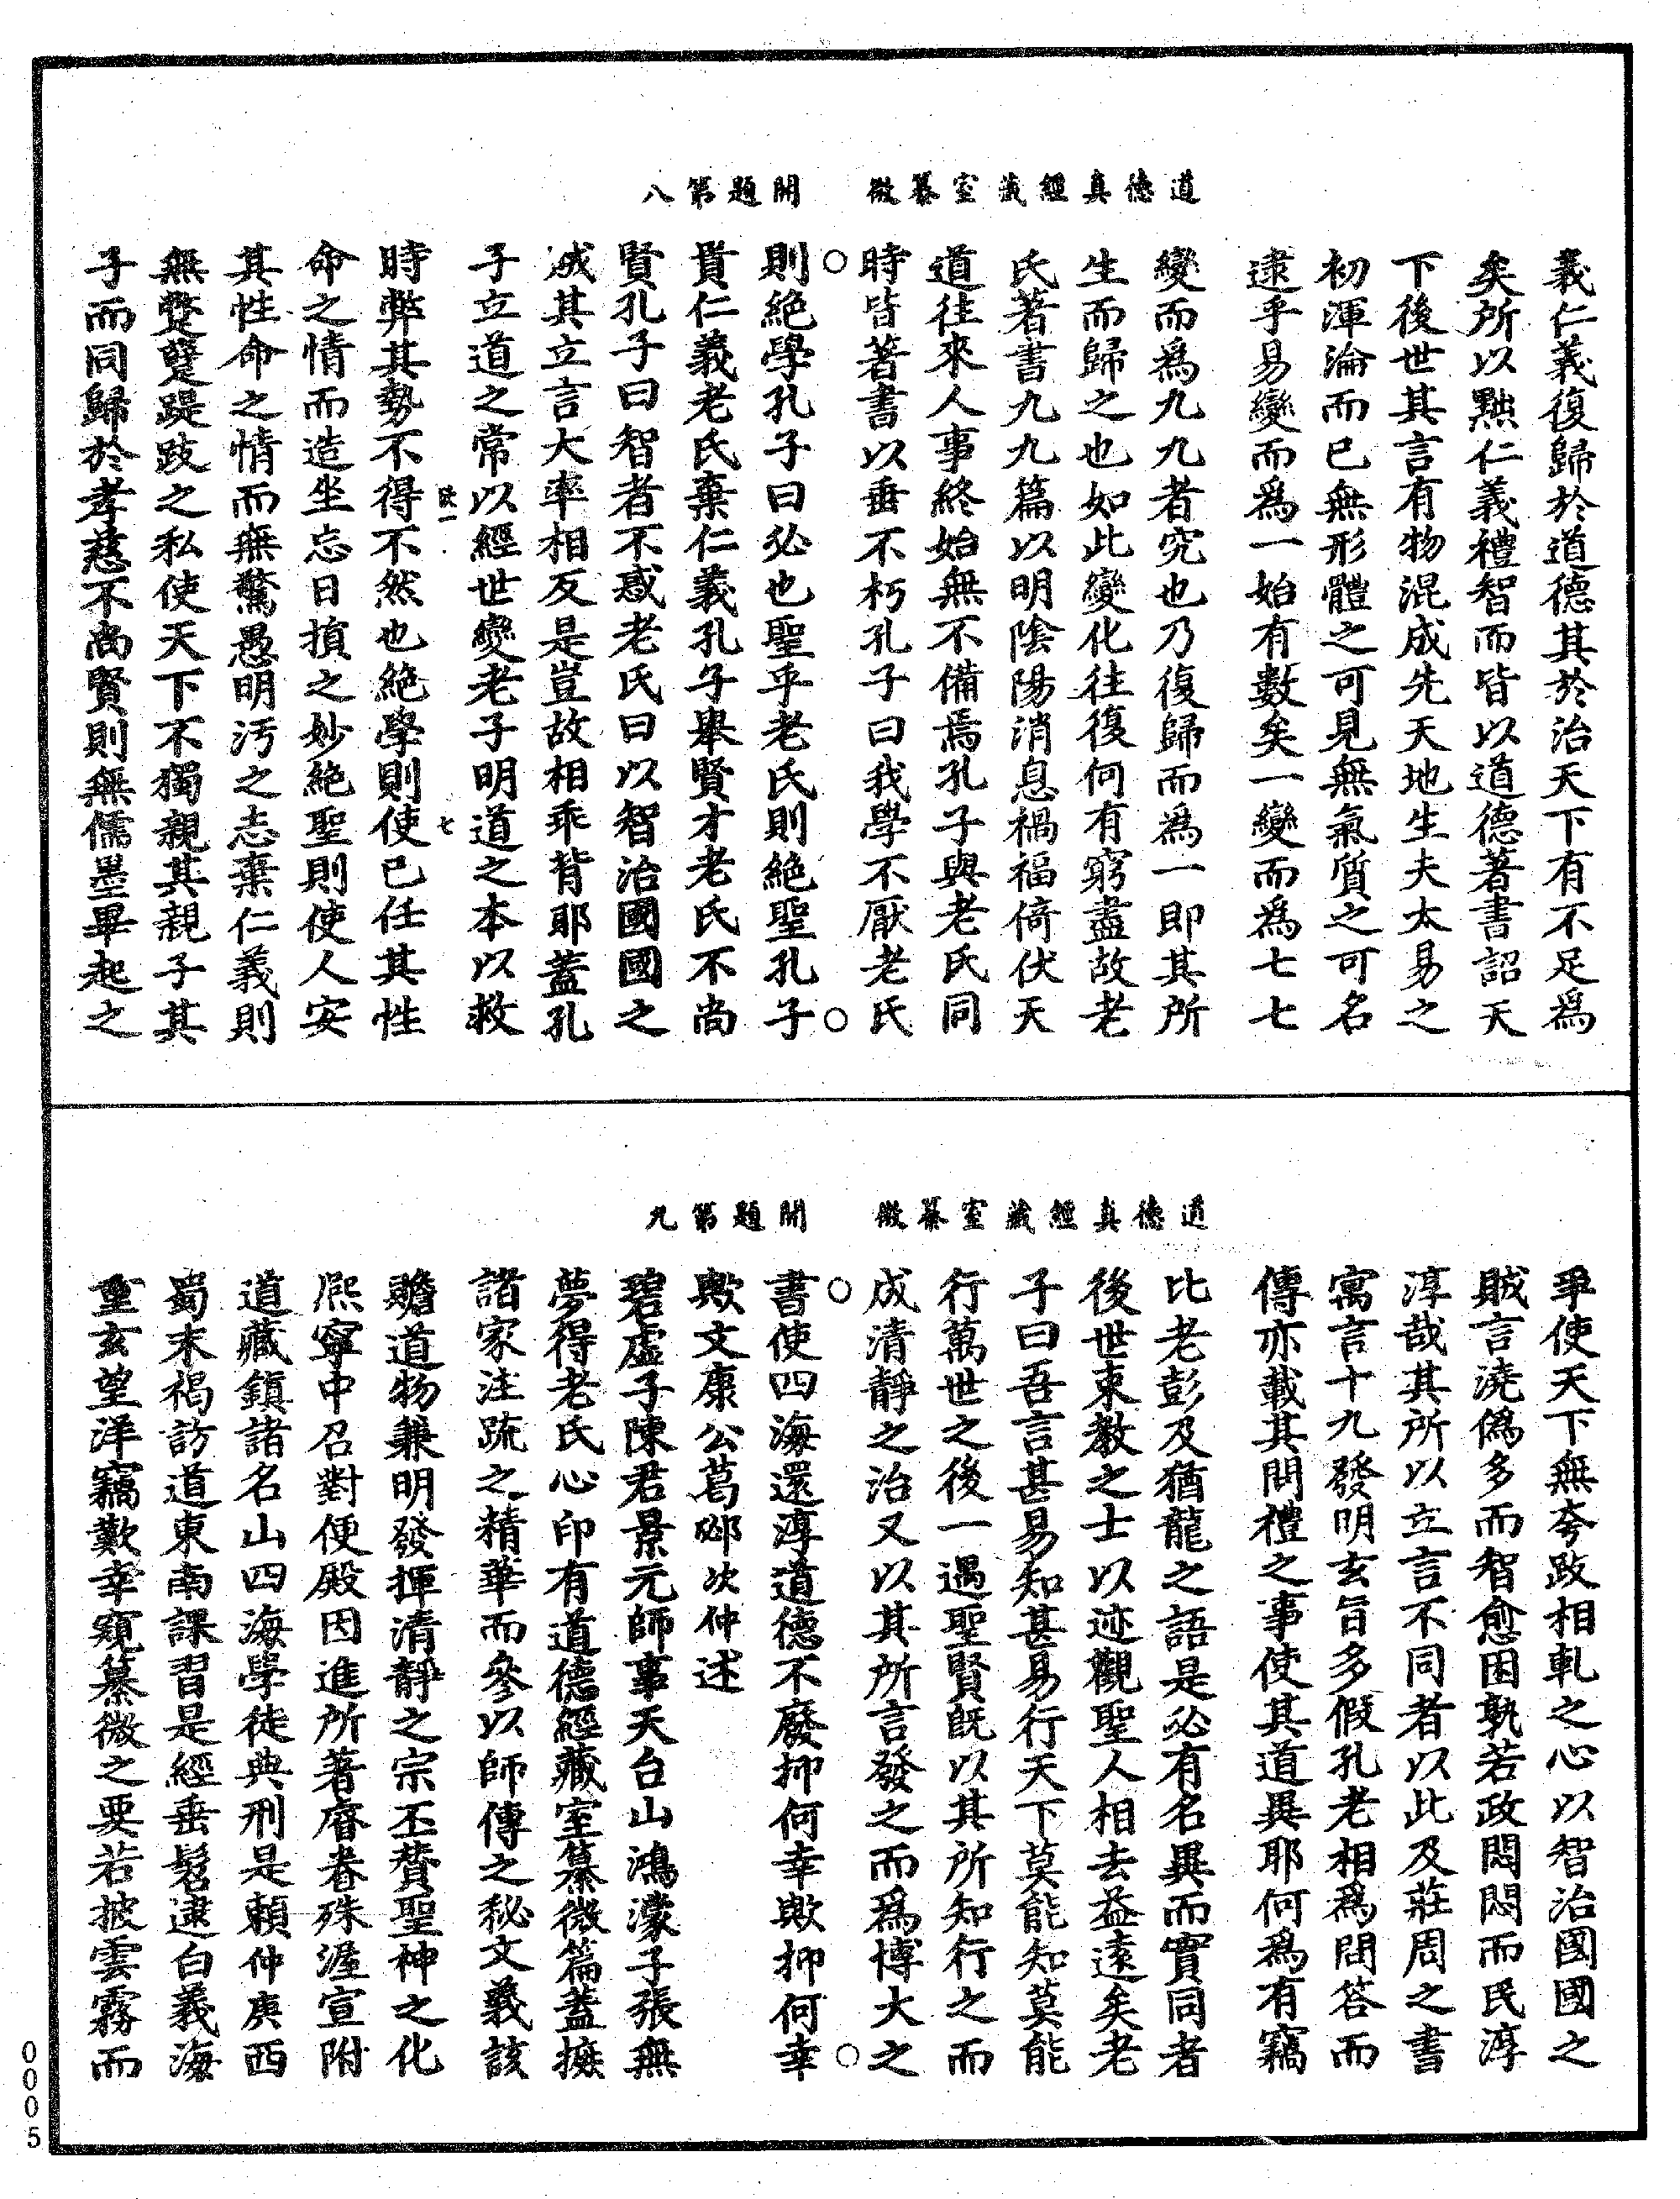 道德真經藏室纂微　開題第八
義仁義復歸於道德其於治天下有不足爲
矣所以黜仁義禮智而皆以道德著書詔天
下後世其言有物混成先天地生夫太易之
初渾淪而已無形體之可見無氣質之可名
逮乎易變而爲一始有數矣一變而爲七七
變而爲九九者究也乃復歸而爲一即其所
生而歸之也如此變化往復何有窮盡故老
氏著書九九篇以明陰陽消息禍福倚伏天
道往來人事終始無不備焉孔子與老氏同
時皆著書以垂不朽孔子曰我學不厭老氏
則絶學孔子曰必也聖乎老氏則絶聖孔子
貴仁義老氏棄仁義孔子舉賢才老氏不尚
賢孔子曰智者不惑老氏曰以智治國國之
賊其立言大率相反是豈故相乖背耶蓋孔
子立道之常以經世變老子明道之本以救
七
時弊其勢不得不然也絶學則使己任其性
命之情而造坐忘日損之妙絶聖則使人安
其性命之情而無驚愚明汚之志棄仁義則
無蹩躠踶跂之私使天下不獨親其親子其
子而同歸於孝慈不尚賢則無儒墨畢起之
道德真經藏室纂微　開題第九
爭使天下無夸跂相軋之心以智治國國之
賊言澆僞多而智愈困孰若政悶悶而民淳
淳哉其所以立言不同者以此及莊周之書
寓言十九發明玄旨多假孔老相爲問答而
傳亦載其問禮之事使其道異耶何爲有竊
比老彭及猶龍之語是必有名異而實同者
後世束教之士以迹觀聖人相去益遠矣老
子曰吾言甚易知甚易行天下莫能知莫能
行萬世之後一遇聖賢旣以其所知行之而
成清靜之治又以其所言發之而爲博大之
書使四海還淳道德不廢抑何幸歟抑何幸
歟文康公葛邲次仲述
碧虛子陳君景元師事天台山鴻濛子張無
夢得老氏心印有道德經藏室纂微篇蓋摭
諸家注疏之精華而參以師傳之秘文義該
贍道物兼明發揮清靜之宗丕贊聖神之化
熈寧中召對便殿因進所著睿眷殊渥宣附
道藏鎮諸名山四海學徒典刑是賴仲庚西
蜀末褐訪道東南課習是經垂髫逮白義海
重玄望洋竊歎幸窺纂微之要若披雲霧而
0005